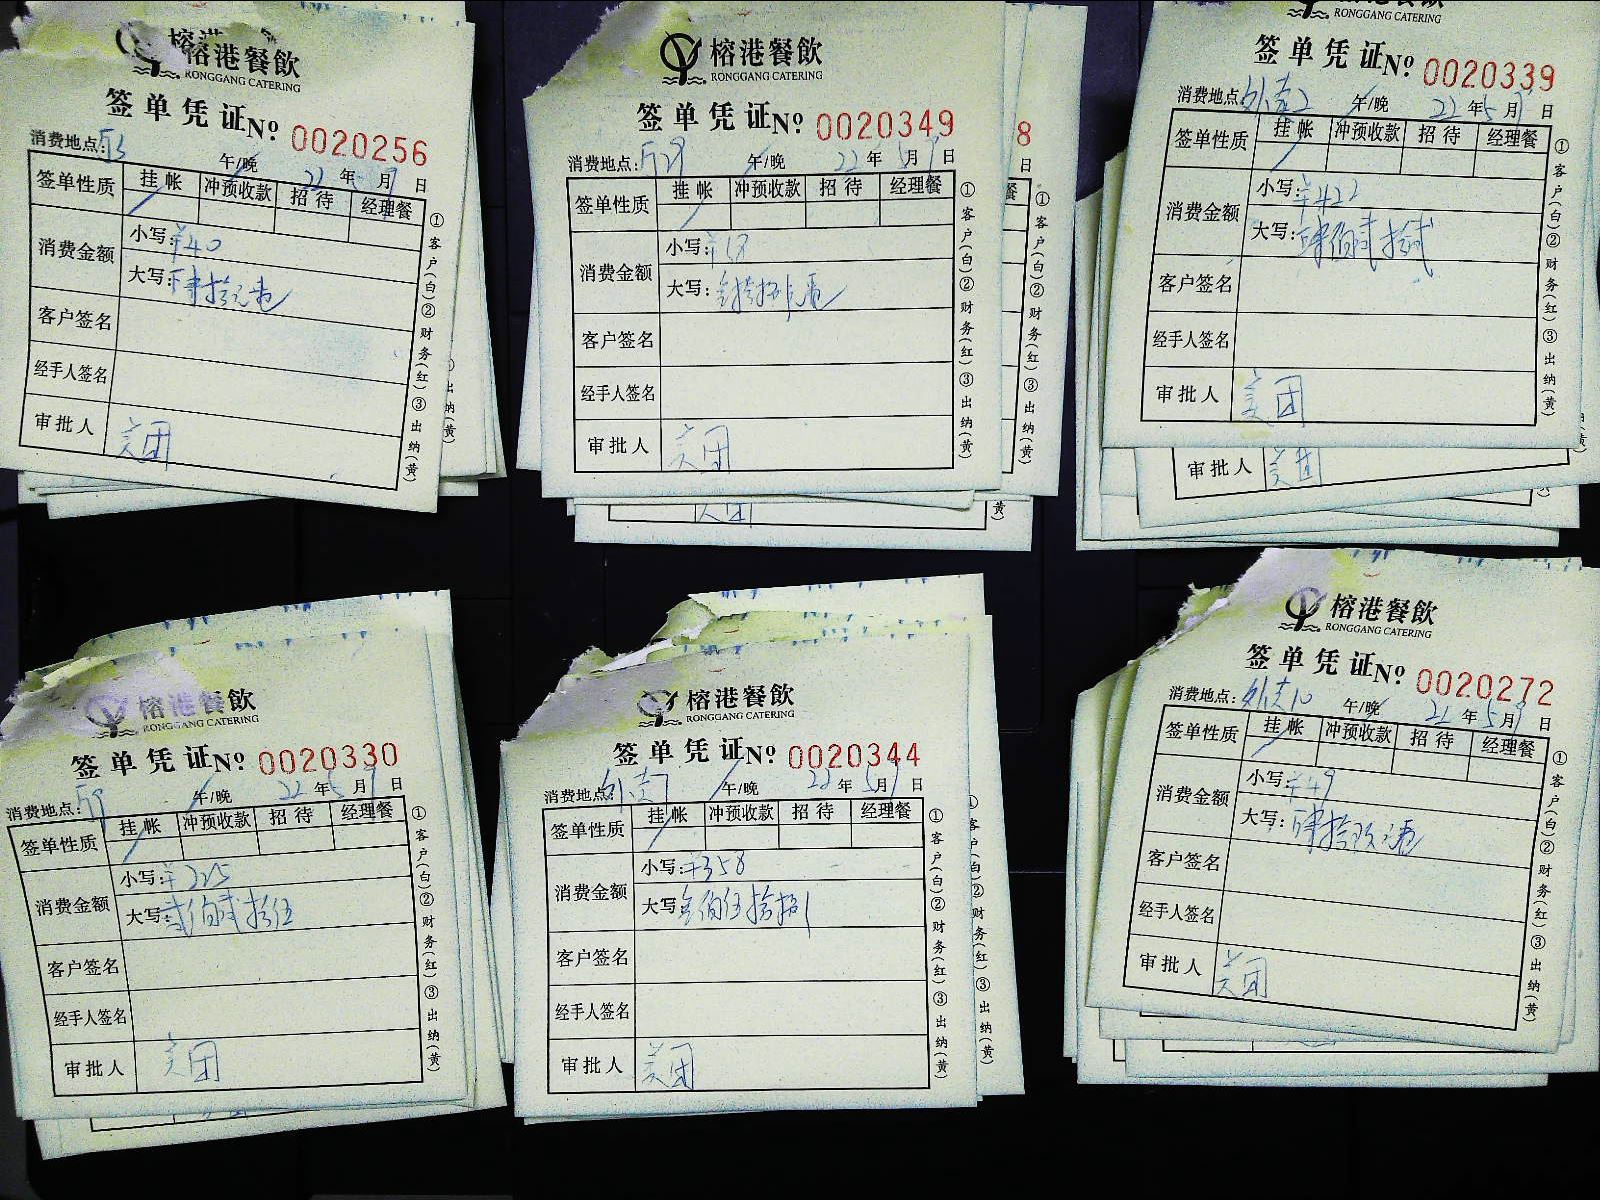 榕港餐飲
RONGGANG CATERING
签单凭证 Nº 0020256
消费地点: 厅3 午/晚 22 年 月 9 日
签单性质 挂帐 冲预收款 招待 经理餐
消费金额 小写: ¥40
大写: 肆拾元
客户签名
经手人签名
审批人 美团
①客户(白)②财务(红)③出纳(黄)
榕港餐飲
RONGGANG CATERING
签单凭证 Nº 0020349
消费地点: 午/晚 22 年 5 月 9 日
签单性质 挂帐 冲预收款 招待 经理餐
消费金额 小写:
大写:
客户签名
经手人签名
审批人 美团
①客户(白)②财务(红)③出纳(黄)
8
日
餐
①客户(白)②财务(红)③出纳(黄)
RONGGANG CATERING
签单凭证 Nº 0020339
消费地点: 外卖2 午/晚 22 年 5 月 9 日
签单性质 挂帐 冲预收款 招待 经理餐
消费金额 小写: ¥422
大写: 肆佰贰拾贰
客户签名
经手人签名
审批人 美团
①客户(白)②财务(红)③出纳(黄)
审批人 美团
榕港餐飲
RONGGANG CATERING
签单凭证 Nº 0020330
消费地点: 厅9 午/晚 22 年 5 月 9 日
签单性质 挂帐 冲预收款 招待 经理餐
消费金额 小写: ¥225
大写: 贰佰贰拾伍
客户签名
经手人签名
审批人 美团
①客户(白)②财务(红)③出纳(黄)
榕港餐飲
RONGGANG CATERING
签单凭证 Nº 0020344
消费地点: 外卖7 午/晚 22 年 5 月 9 日
签单性质 挂帐 冲预收款 招待 经理餐
消费金额 小写: ¥358
大写: 叁佰伍拾捌
客户签名
经手人签名
审批人 美团
①客户(白)②财务(红)③出纳(黄)
①客户(白)②财务(红)③出纳(黄)
榕港餐飲
RONGGANG CATERING
签单凭证 Nº 0020272
消费地点: 外卖10 午/晚 22 年 5 月 9 日
签单性质 挂帐 冲预收款 招待 经理餐
消费金额 小写: ¥49
大写: 肆拾玖元
客户签名
经手人签名
审批人 美团
①客户(白)②财务(红)③出纳(黄)